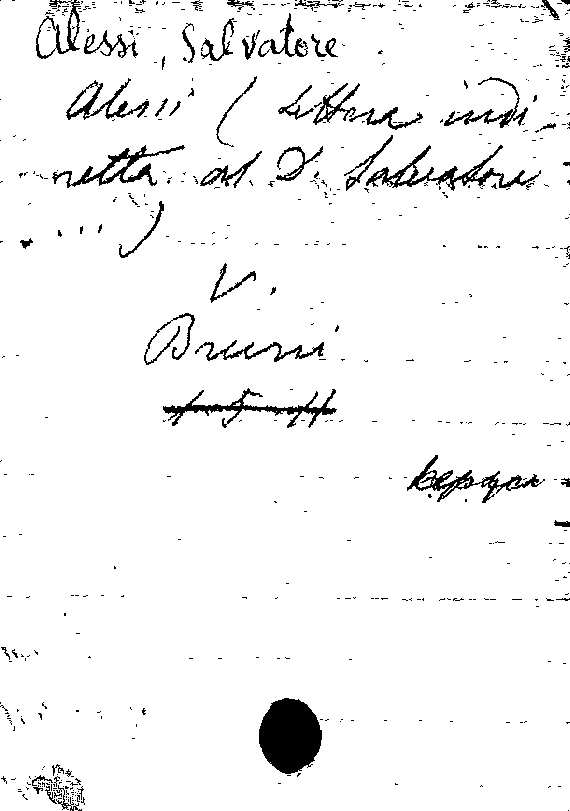 Alessi, Salvatore
Alessi (Lettera indi-
retta al D. Salvatore
....)
V.
Bruni